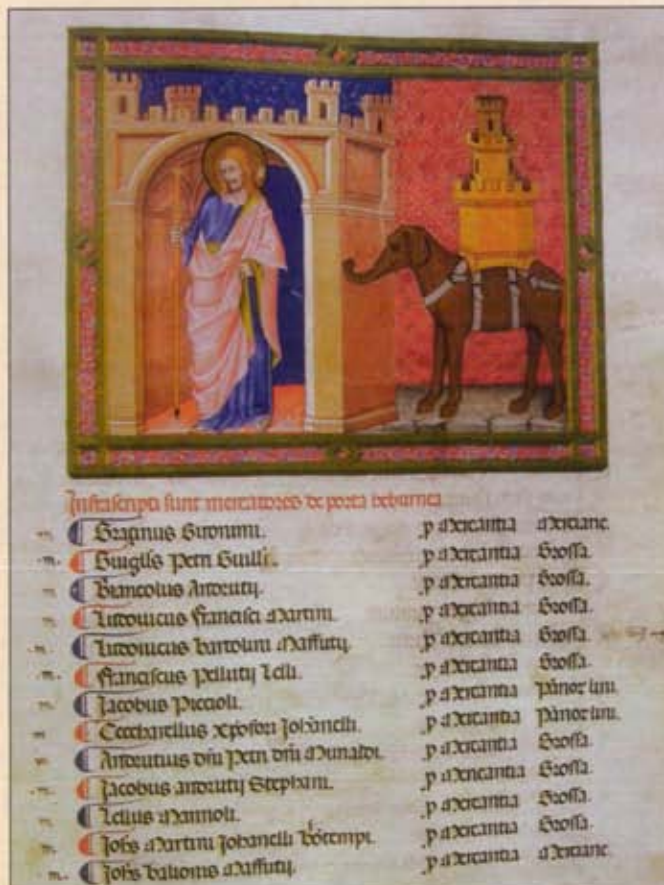 Infrascripti sunt mercatores de porta eburnea
m. Gratinus Geronimi. p mercantia merciane.
m. Guigl's Petri Guilli. p mercantia Grossa.
m. Brancolus Androutij. p mercantia Grossa.
m. Lodouicus francisci martini. p mercantia Grossa.
m. Lodouicus bartolini maffutij. p mercantia Grossa.
m. franciscus pellutij lelli. p mercantia Grossa.
m. Jacobus Piccioli. p mercantia panor lini.
m. Ceccharellus xpofori Johanelli. p mercantia panor lini.
m. Androutius dni Petri dni munaldi. p mercantia Grossa.
m. Jacobus androutij Stephani. p mercantia Grossa.
m. Lellus mannoli. p mercantia Grossa.
m. Johs martini Johanelli botempi. p mercantia Grossa.
m. Johs balionis maffutij. p mercantia merciane.